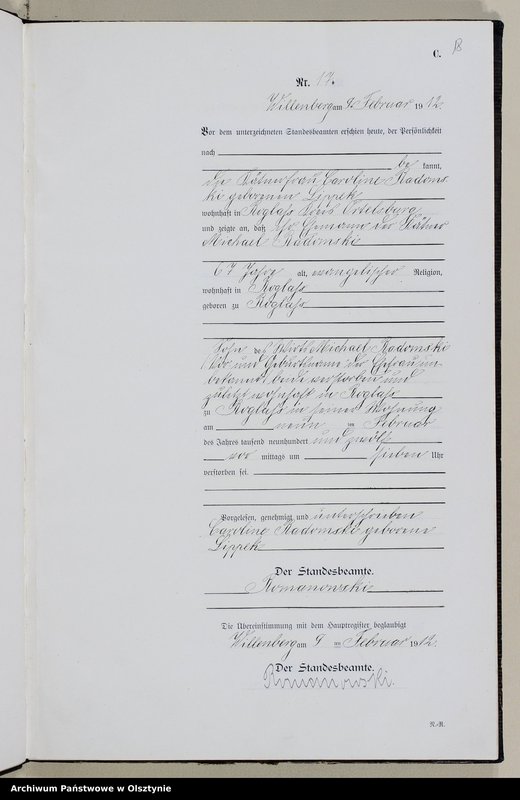 C.
Nr. 17.
Willenberg am 9. Februar 1912.
Vor dem unterzeichneten Standesbeamten erschien heute, der Persönlichkeit
nach
be kannt,
die Käthnerfrau Caroline Radoms-
ki geborenen Lippek
wohnhaft in Roglass Kreis Ortelsburg
und zeigte an, daß ihr Ehemann der Käthner
Michael Radomski
67 Jahre alt, evangelischer Religion,
wohnhaft in Roglass
geboren zu Roglass
Sohn des Wirth Michael Radomski
Vor und Geburtsname der Ehefrau un-
bekannt beide verstorben und
zuletzt wohnhaft in Roglass
zu Roglass in seiner Wohnung
am neun im Februar
des Jahres tausend neunhundert und zwölf
vor mittags um sieben Uhr
verstorben sei.
Vorgelesen, genehmigt und unterschrieben
Caroline Radomski geborene
Lippek
Der Standesbeamte.
Romanowski
Die Übereinstimmung mit dem Hauptregister beglaubigt
Willenberg am 9 ten Februar 1912.
Der Standesbeamte.
Romanowski.
N.-R.
Archiwum Państwowe w Olsztynie